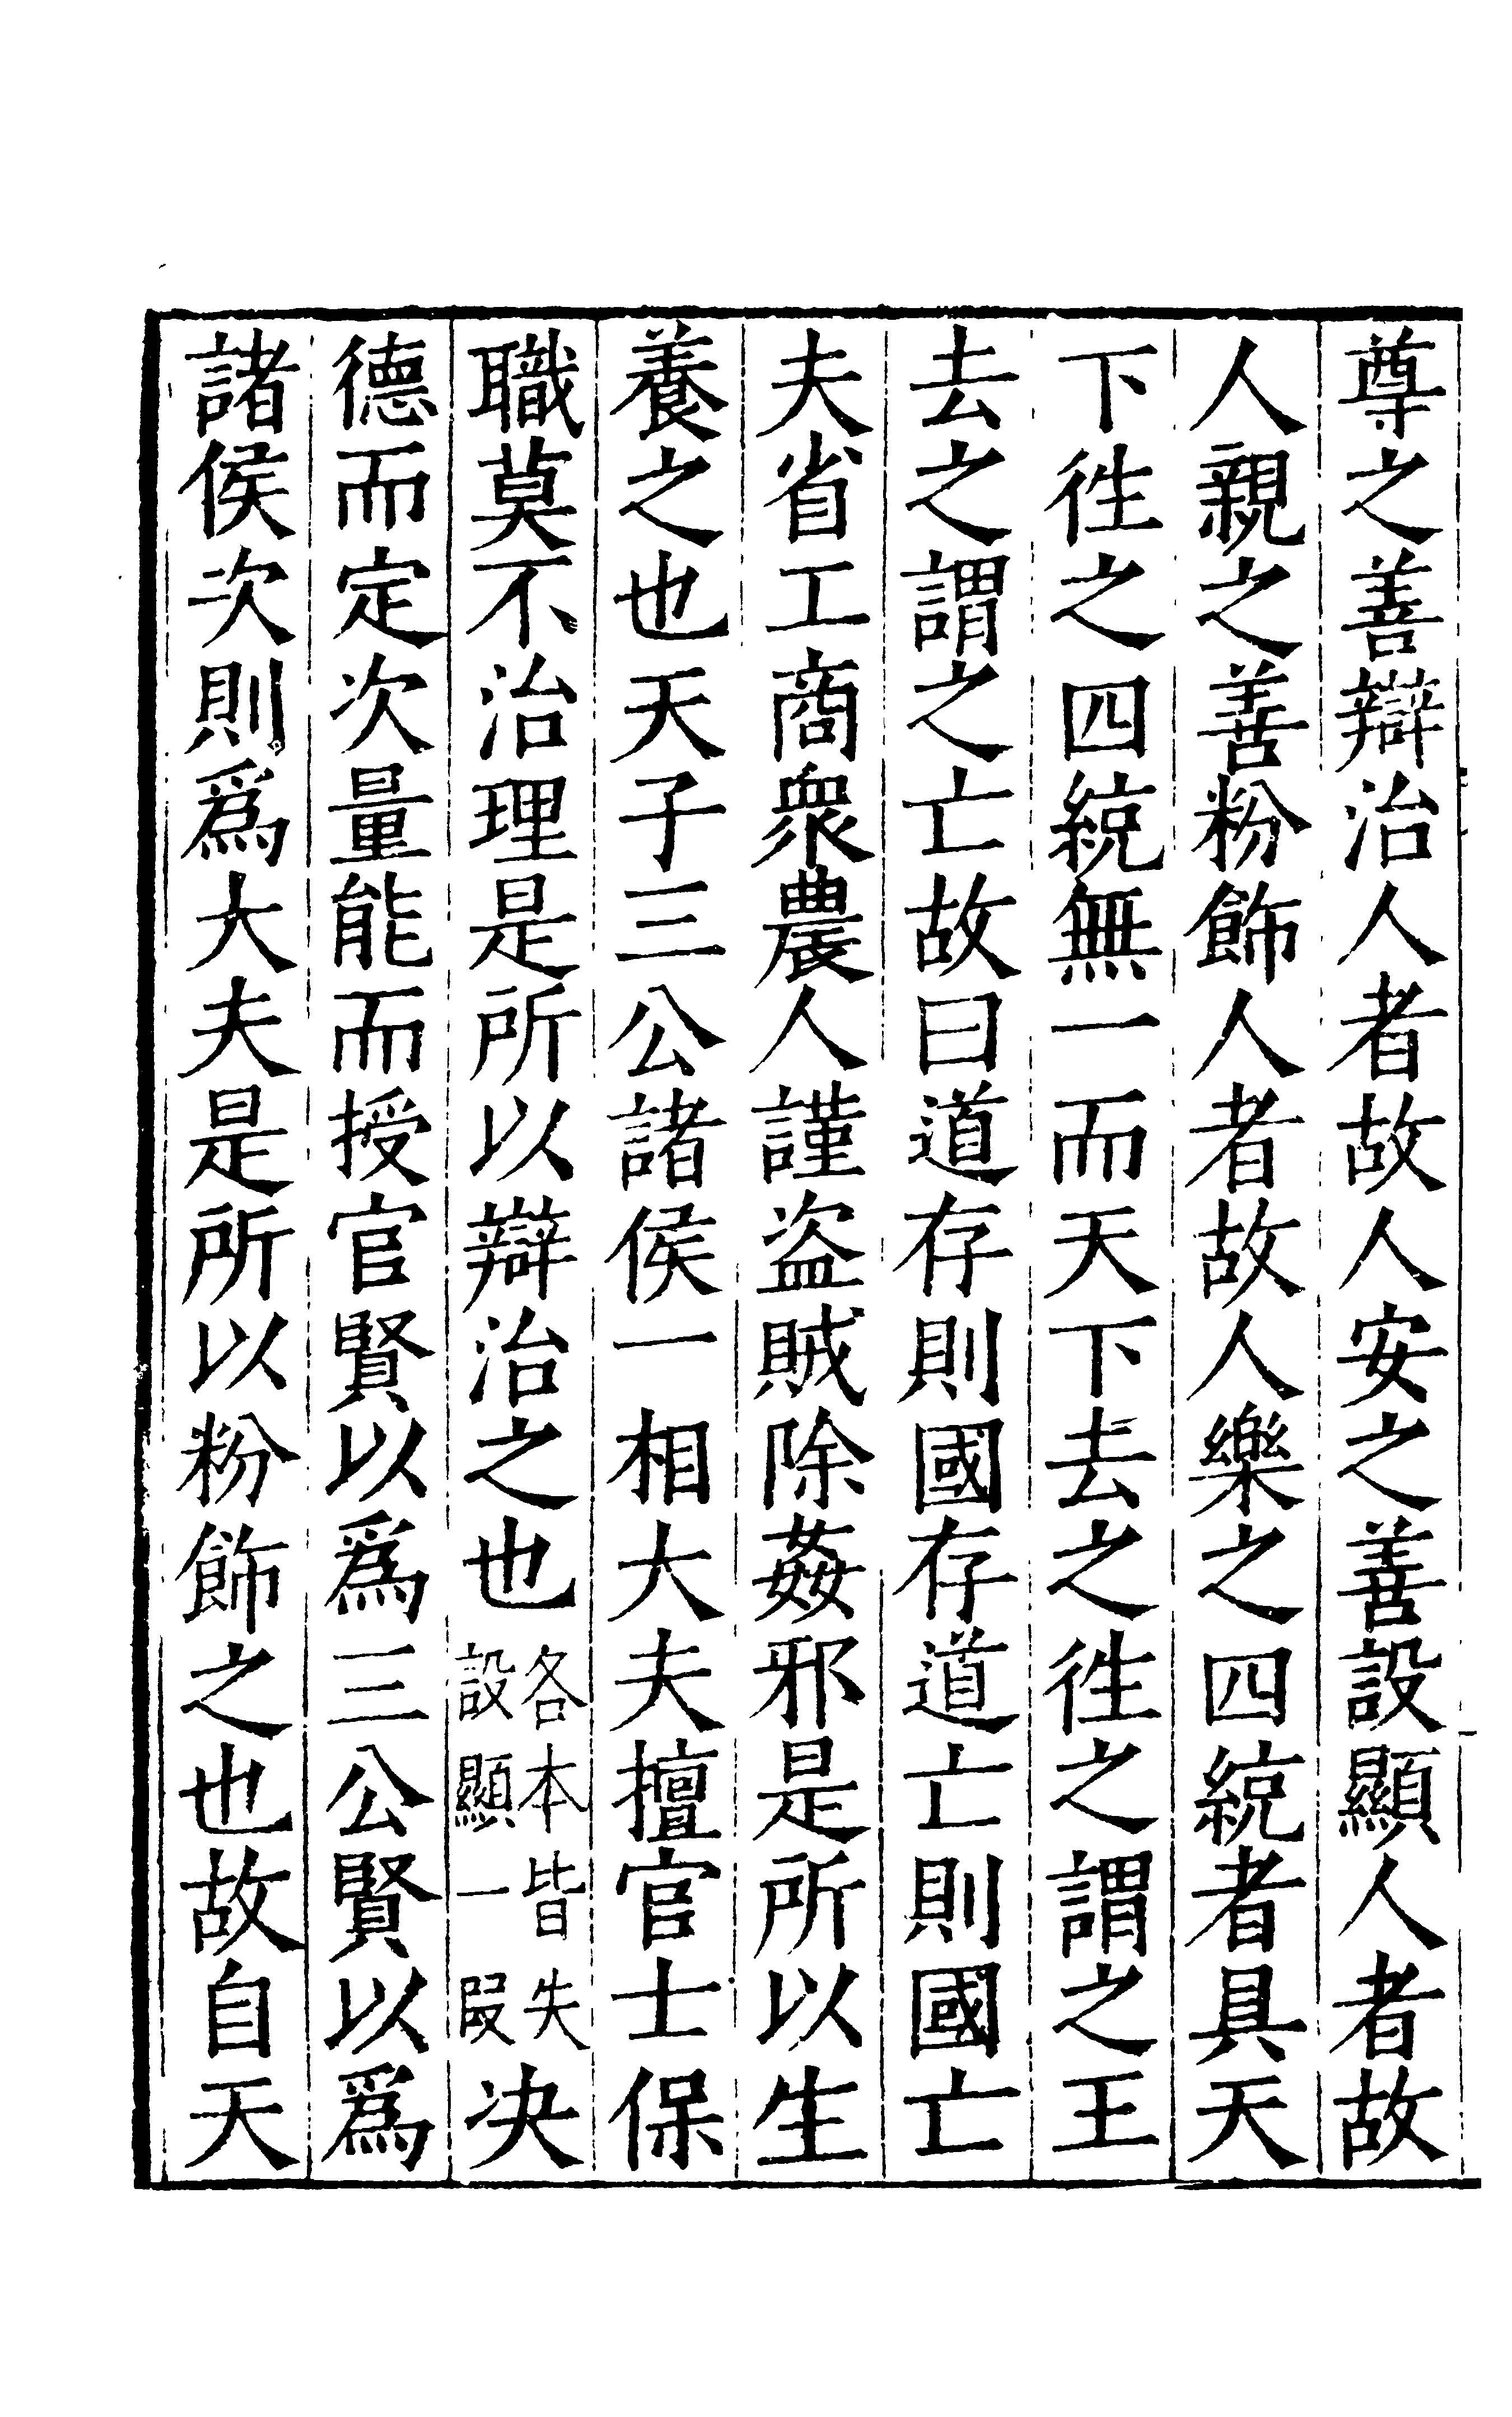 尊之善辯治人者故人安之善設顯人者故
人親之善粉飾人者故人樂之四統者具天
下徃之四統無一而天下去之徃之謂之王
去之謂之亡故曰道存則國存道亡則國亡
夫省工商衆農人謹盗賊除姦邪是所以生
養之也天子三公諸侯一相大夫擅官士保
職莫不治理是所以辯治之也各本皆失設顯一段决
德而定次量能而授官賢以爲三公賢以爲
諸侯次則爲大夫是所以粉飾之也故自天